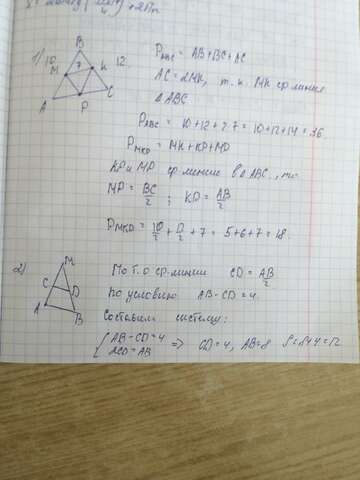 1)
B
10
7
12
M
K
A
P
C
P_ABC = AB+BC+AC
AC=2MK, т.к. MK ср. линия
△ABC
P_ABC = 10+12+2·7 = 10+12+14=36.
P_MKP = MK+KP+MP
KP и MP ср. линии в △ABC, то
MP = BC/2 ; KP = AB/2
P_MKP = 10/2 + 12/2 + 7 = 5+6+7=18.
2)
M
C
D
A
B
По т. о ср. линии CD = AB/2
По условию AB-CD=4.
Составим систему:
{ AB-CD=4
2CD=AB => CD=4, AB=8